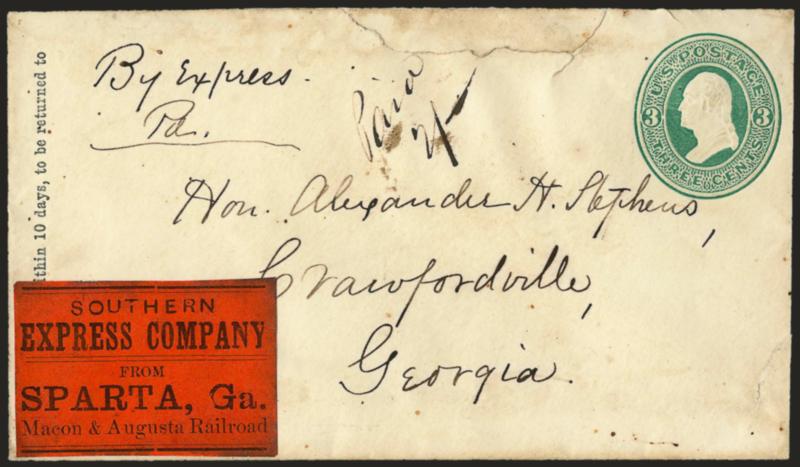 By Express.
Pd.
Paid
U.S. POSTAGE
3 3
THREE CENTS
Hon. Alexander H. Stephens,
Crawfordville,
Georgia.
ithin 10 days, to be returned to
SOUTHERN
EXPRESS COMPANY
FROM
SPARTA, Ga.
Macon & Augusta Railroad